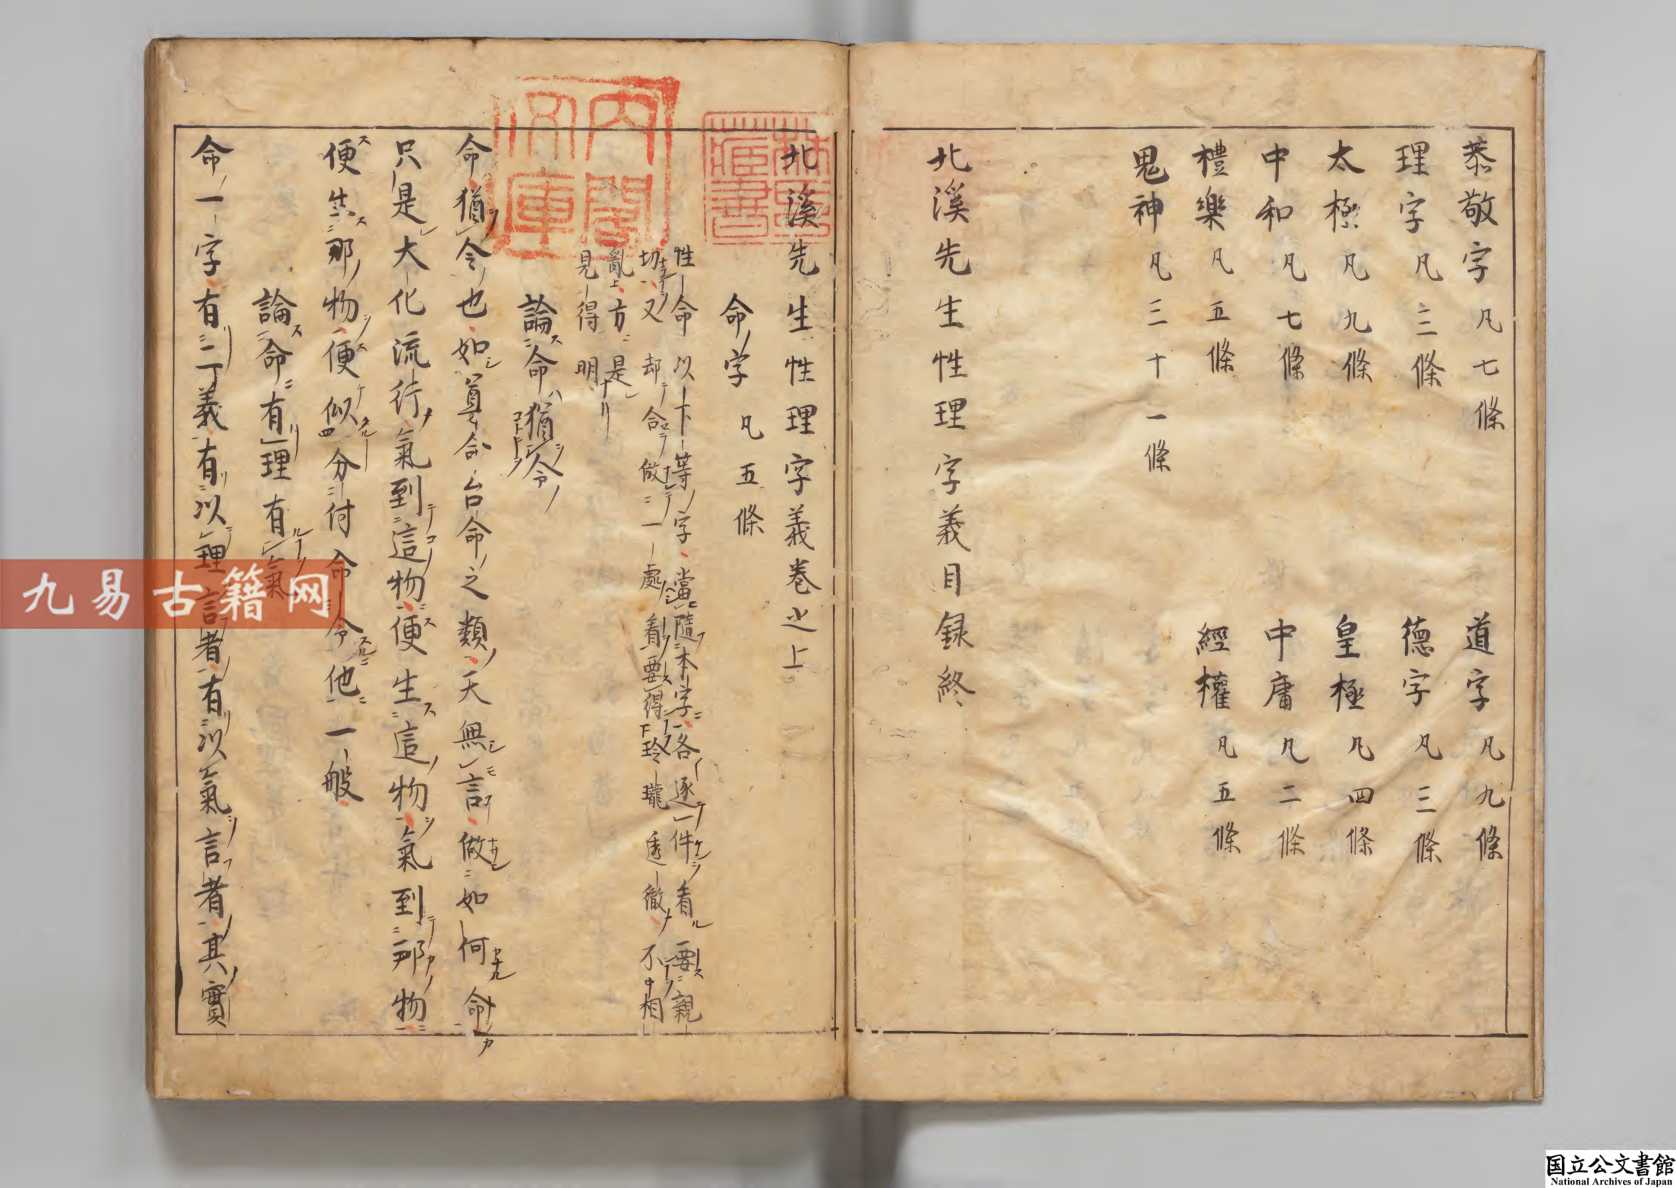 恭敬字 凡七條 道字 凡九條
理字 凡三條 德字 凡三條
太極 凡九條 皇極 凡四條
中和 凡七條 中庸 凡二條
禮樂 凡五條 經權 凡五條
鬼神 凡三十一條
北溪先生性理字義目録終
北溪先生性理字義卷之上
命字 凡五條
性命以下等字當隨本字各逐一件看要親
切又却合做一處看要得玲瓏透徹不相
亂方是
見得明
論命猶令
命猶令也如尊命台命之類天無言做如何命
只是大化流行氣到這物便生這物氣到那物
便生那物便似分付命令他一般
論命有理有氣
命一字有二義有以理言者有以氣言者其實
内閣
文庫
林氏
藏書
九易古籍网
国立公文書館
National Archives of Japan